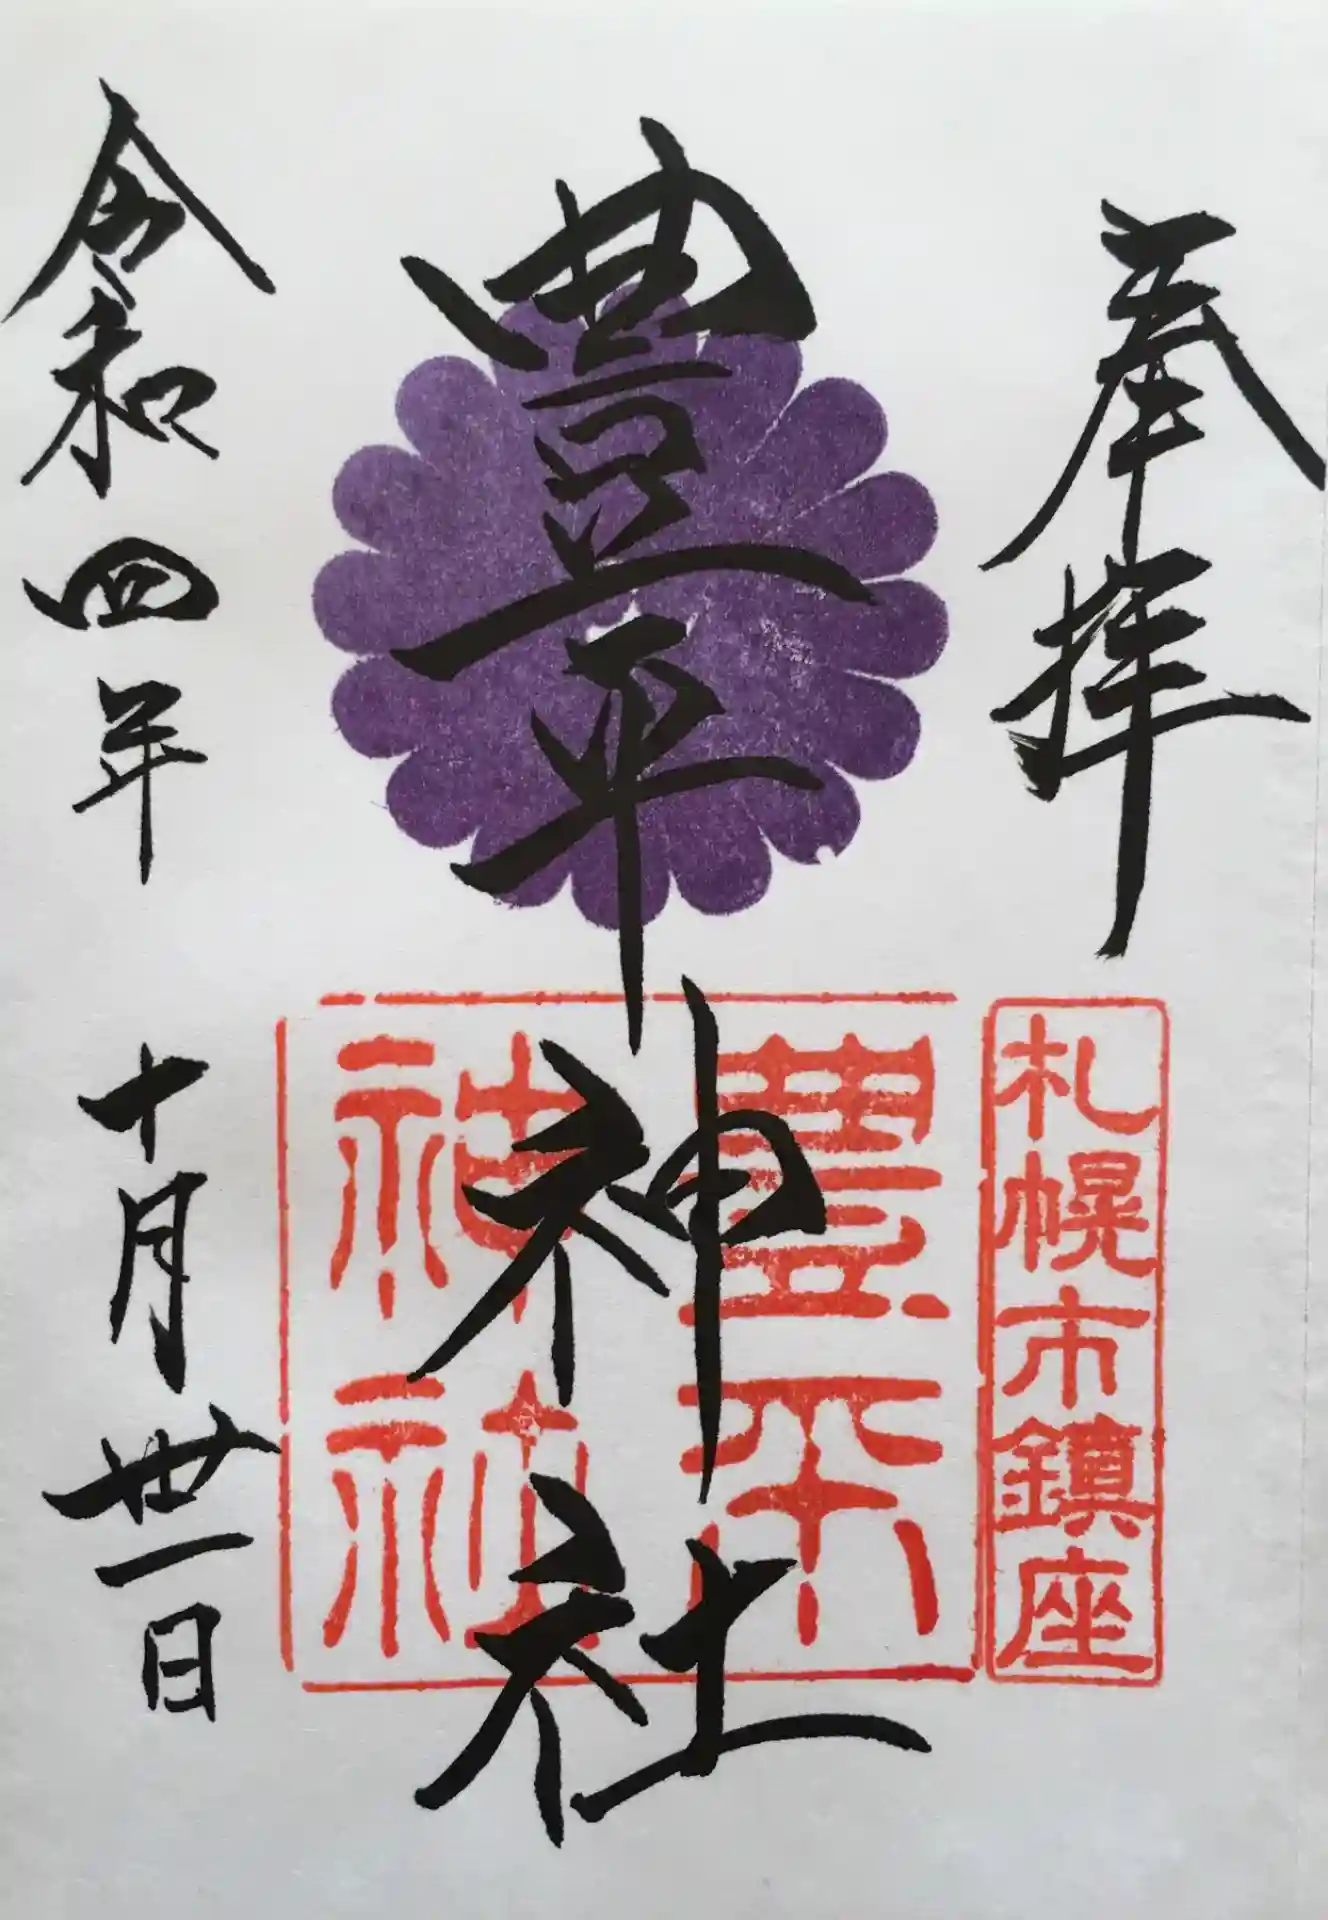 奉拝
札幌市鎮座
豊平神社
豊平
神社
令和四年 十月丗一日